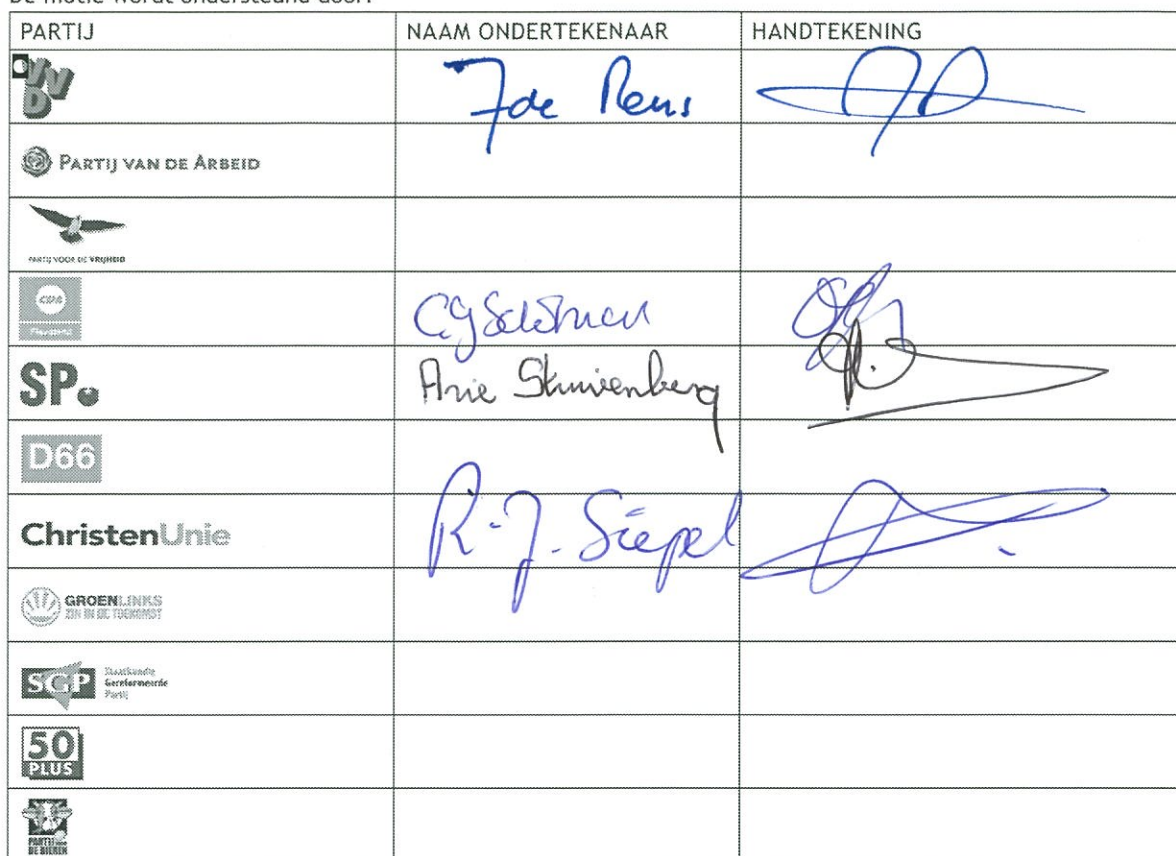 De motie wordt ondersteund door:
PARTIJ NAAM ONDERTEKENAAR HANDTEKENING
VVD J de Reus
PARTIJ VAN DE ARBEID
PARTIJ VOOR DE VRIJHEID
CDA
SP. Arie Stuivenberg
D66
ChristenUnie R.-J. Siepel
GROENLINKS
ZIN IN DE TOEKOMST
SGP Staatkundig
Gereformeerde
Partij
50
PLUS
PARTIJ
DE DIEREN